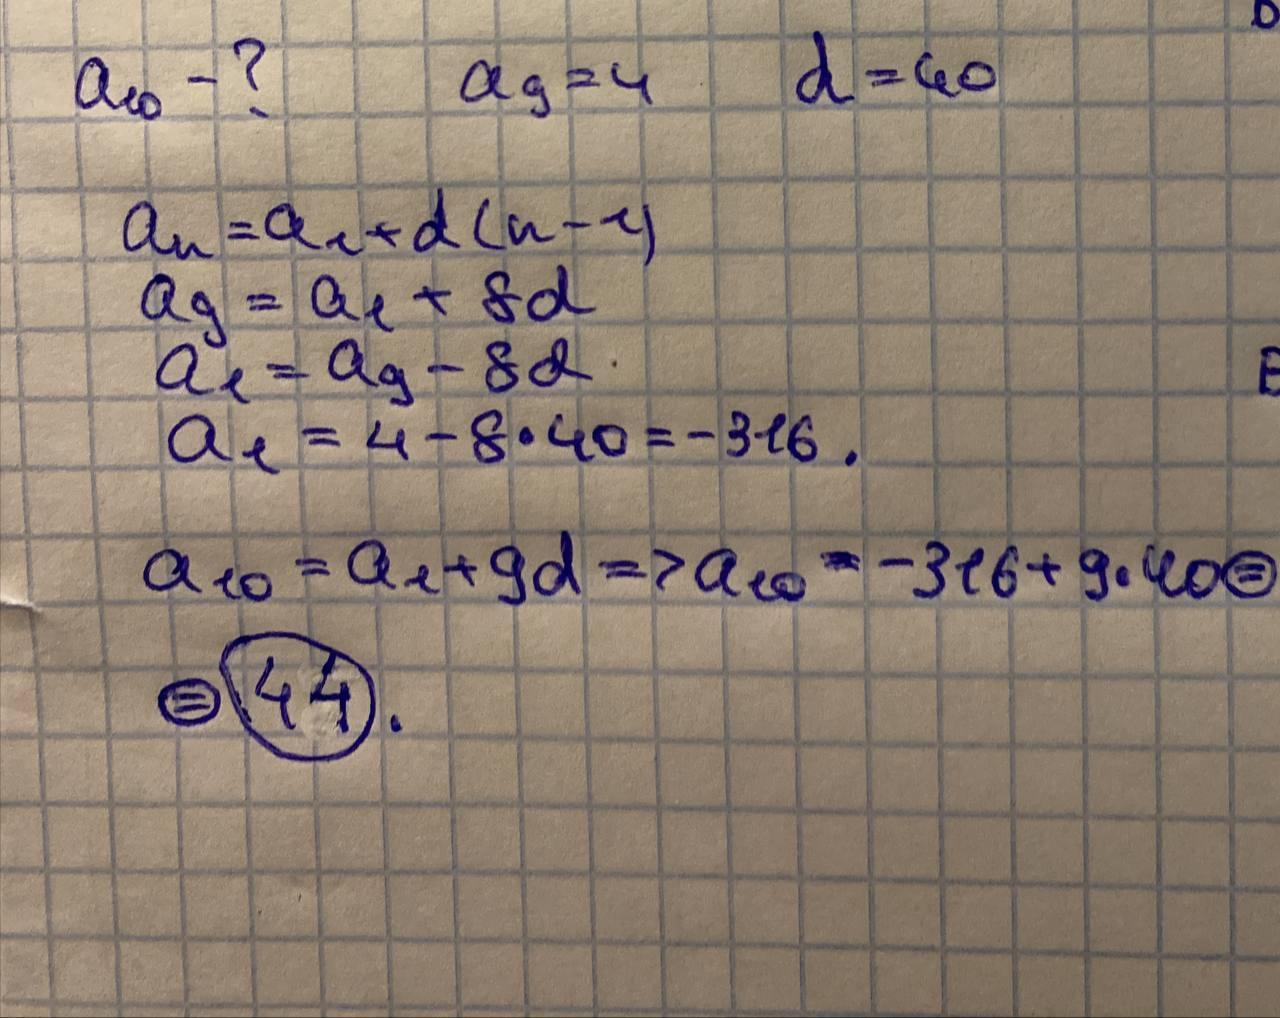 a₁₀ - ? a₉ = 4 d = 40
aₙ = a₁ + d(n - 1)
a₉ = a₁ + 8d
a₁ = a₉ - 8d
a₁ = 4 - 8 • 40 = -316.
a₁₀ = a₁ + 9d => a₁₀ = -316 + 9 • 40 =
= 44.